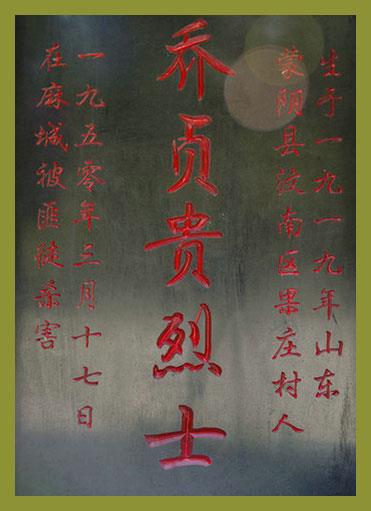 生于一九一九年山东
蒙阴县汶南区果庄村人
乔贡贵烈士
一九五零年三月十七日
在麻城被匪徒杀害